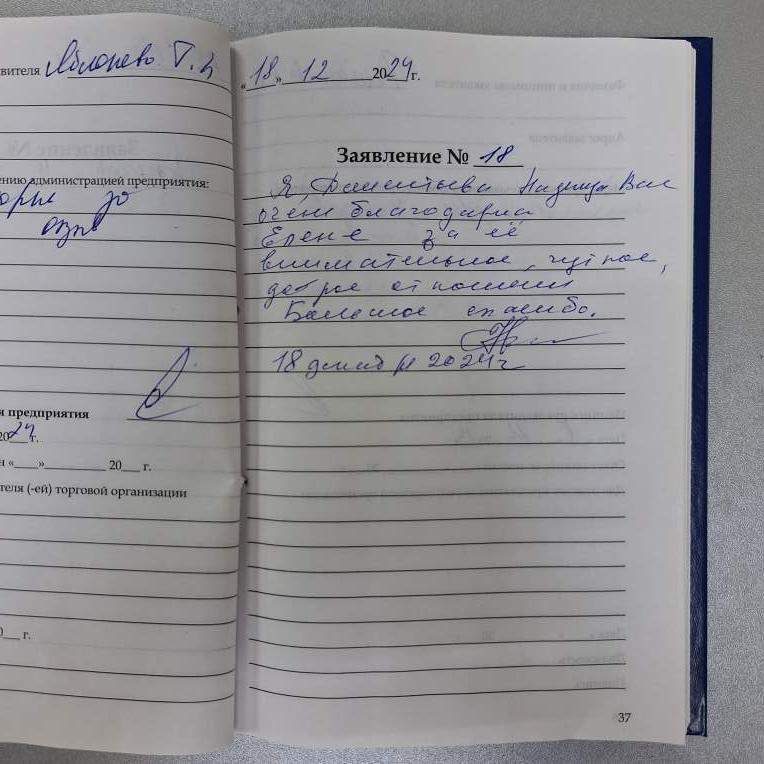 вителя Яблонево Т. А
ению администрацией предприятия:
за
я предприятия
2024 г.
н «___»__________ 20___ г.
теля (-ей) торговой организации
0___ г.
«18» 12 2024 г.
Заявление № 18
Я, Дементьева Надежда Вас
очень благодарна
Елене за её
внимательное, чуткое,
доброе отношение
Большое спасибо.
18 декабря 2024 г
37